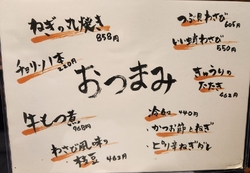 ねぎの丸焼き
858円
チョリソー1本
220円
牛もつ煮
968円
わさび風味の
枝豆 462円
おつまみ
つぶ貝わさび
605円
いいだこわさび
550円
きゅうりの
たたき
462円
冷奴 440円
・かつお節とねぎ
・ピリ辛ねぎダレ